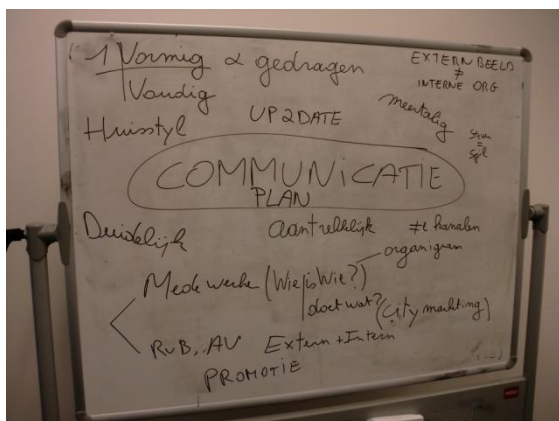 1 Vormig & gedragen
Voudig
EXTERN BEELD
≠
INTERNE ORG
Huisstyl
UP2DATE
meertalig
=
Spil
COMMUNICATIE
PLAN
Duidelijk
aantrekkelijk
≠e kanalen
organigram
Medewerke (Wie is Wie?)
doet wat?
(City marketing)
RvB, AV Extern + Intern
PROMOTIE